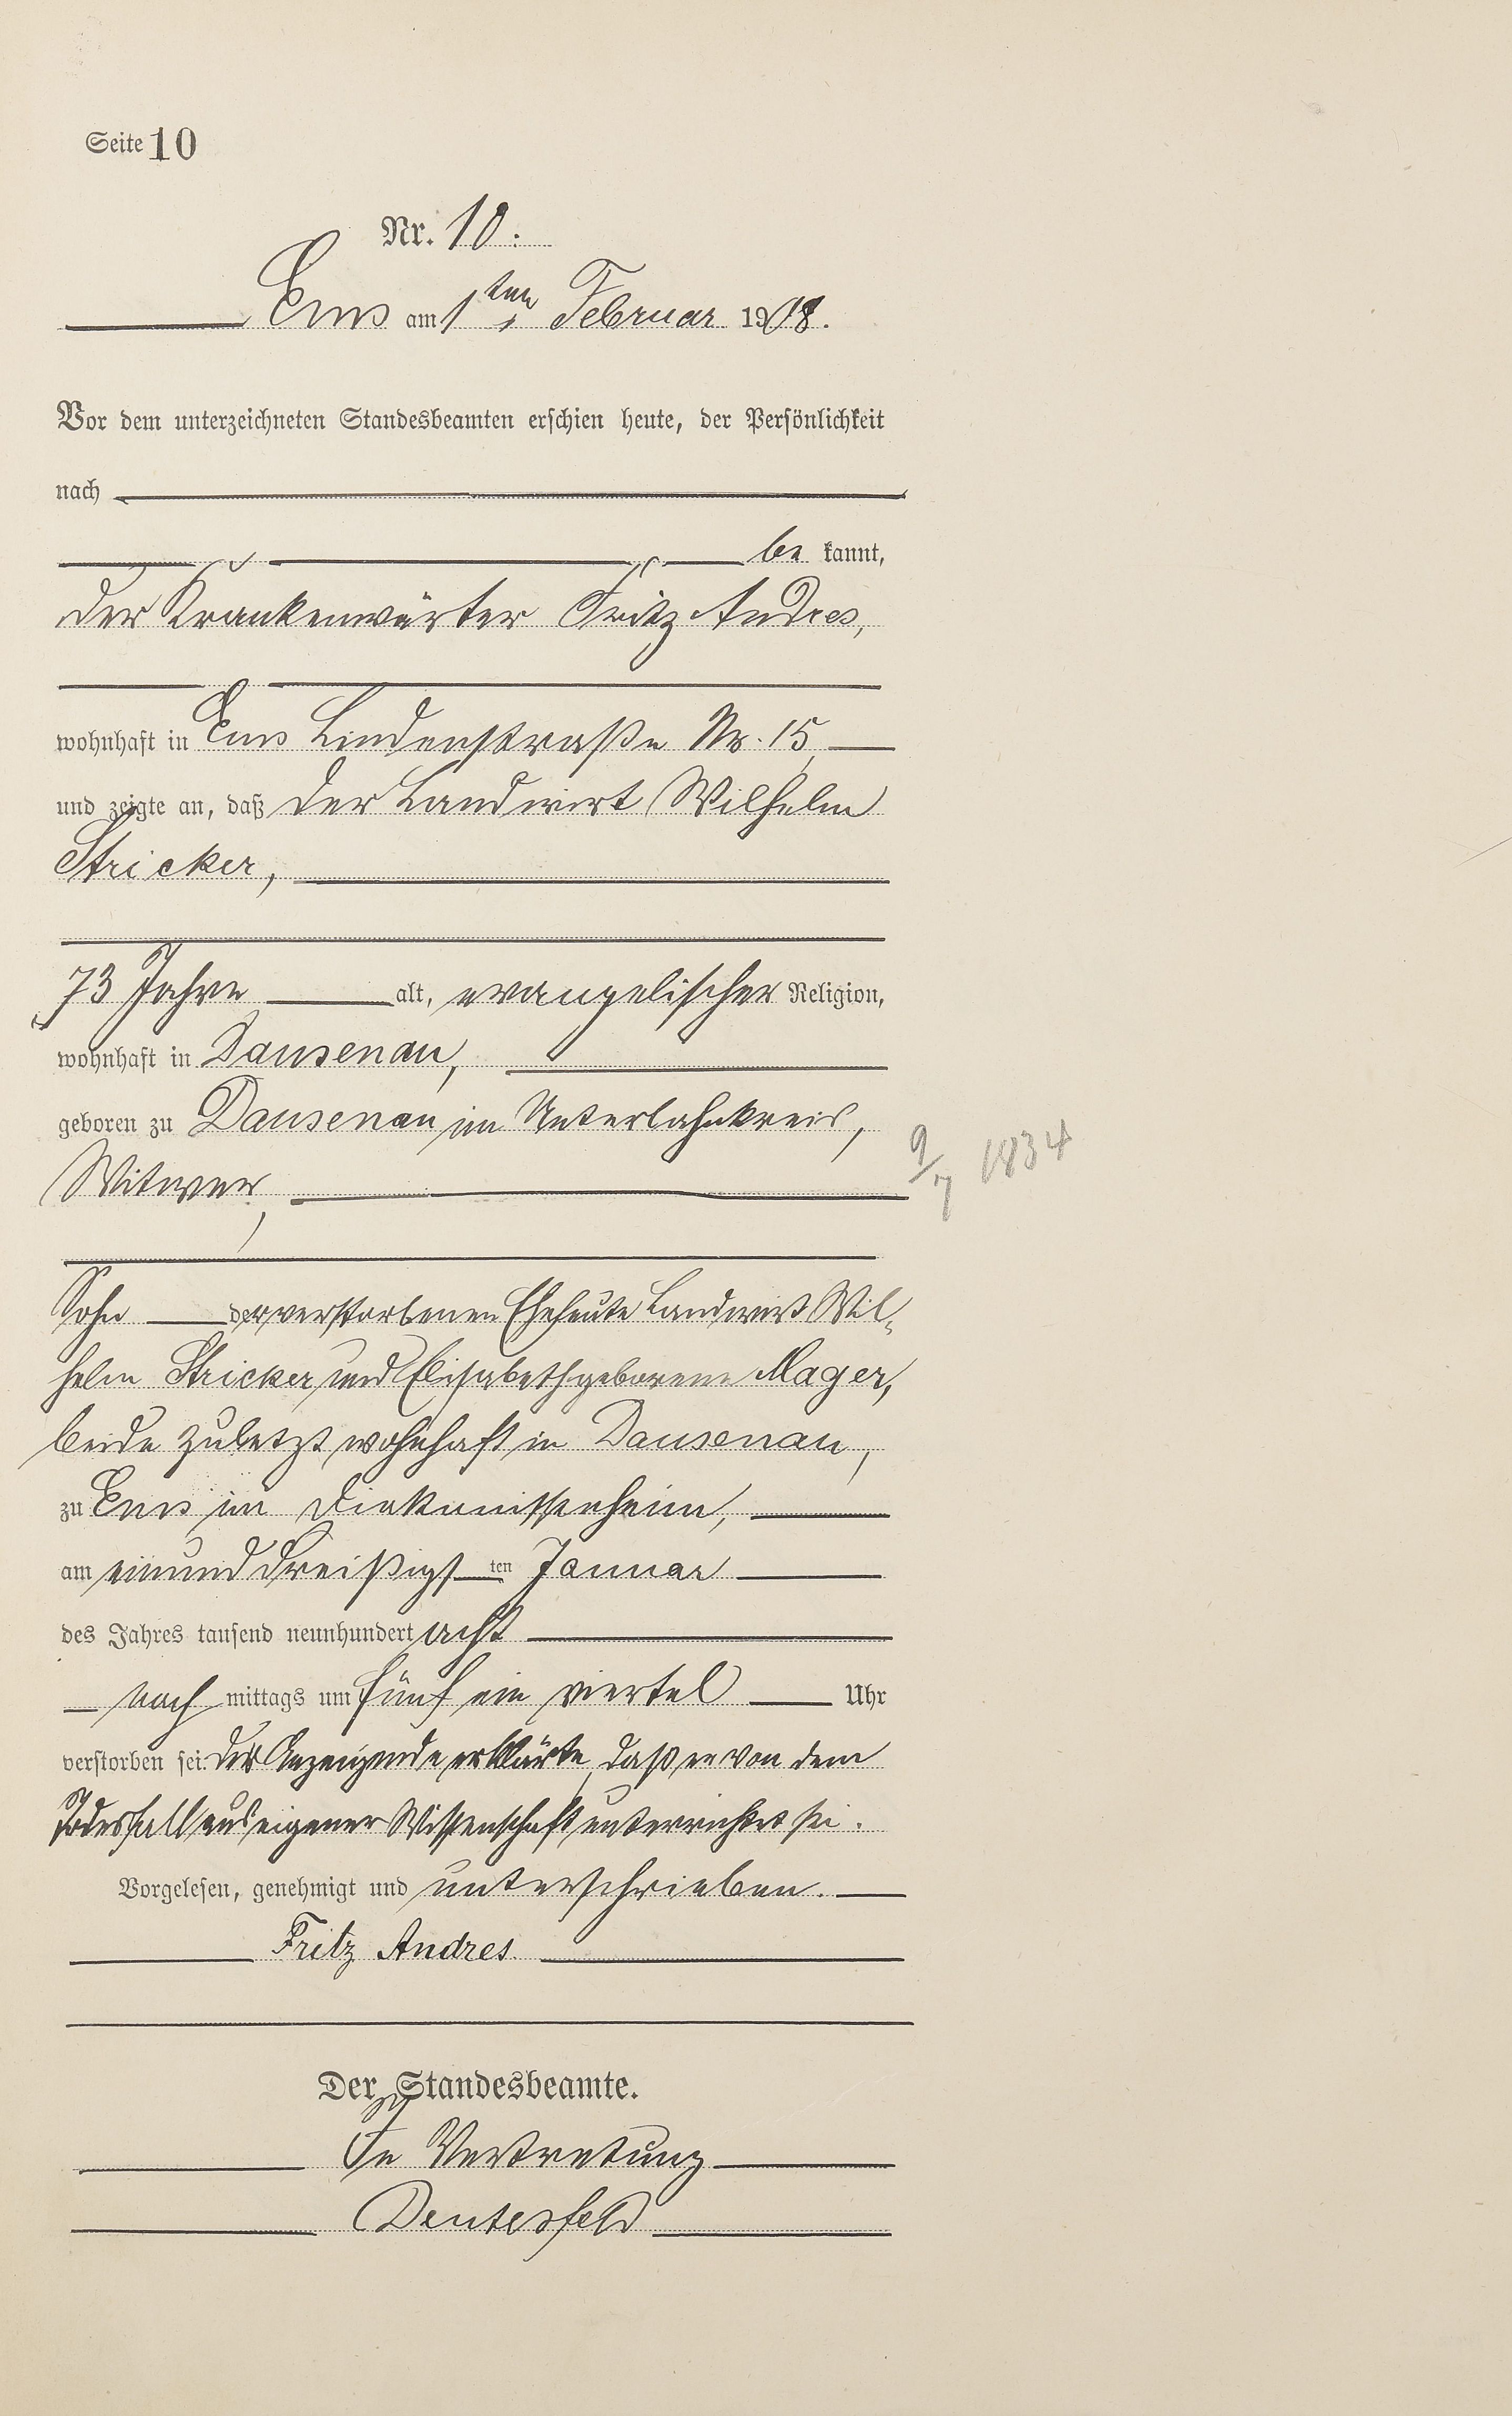 Seite 10
Nr. 10.
Ems am 1ten Februar 1908.
Vor dem unterzeichneten Standesbeamten erschien heute, der Persönlichkeit
nach
be kannt,
der Krankenwärter Fritz Andres,
wohnhaft in Ems Lindenstraße Nr. 15
und zeigte an, daß der Landwirt Wilhelm
Stricker,
73 Jahre alt, evangelischer Religion,
wohnhaft in Dausenau,
geboren zu Dausenau im Unterlahnkreis,
9/7 1834
Witwer,
Sohn der verstorbenen Eheleute Landwirt Wil-
helm Stricker und Elisabeth geborene Mager,
beide zuletzt wohnhaft in Dausenau,
zu Ems im Diakonissenheim,
am einunddreißigsten Januar
des Jahres tausend neunhundert acht
nach mittags um fünf ein viertel Uhr
verstorben sei. Der Anzeigende erklärte, daß er von dem
Todesfall aus eigener Wissenschaft unterrichtet sei.
Vorgelesen, genehmigt und unterschrieben.
Fritz Andres
Der Standesbeamte.
In Vertretung